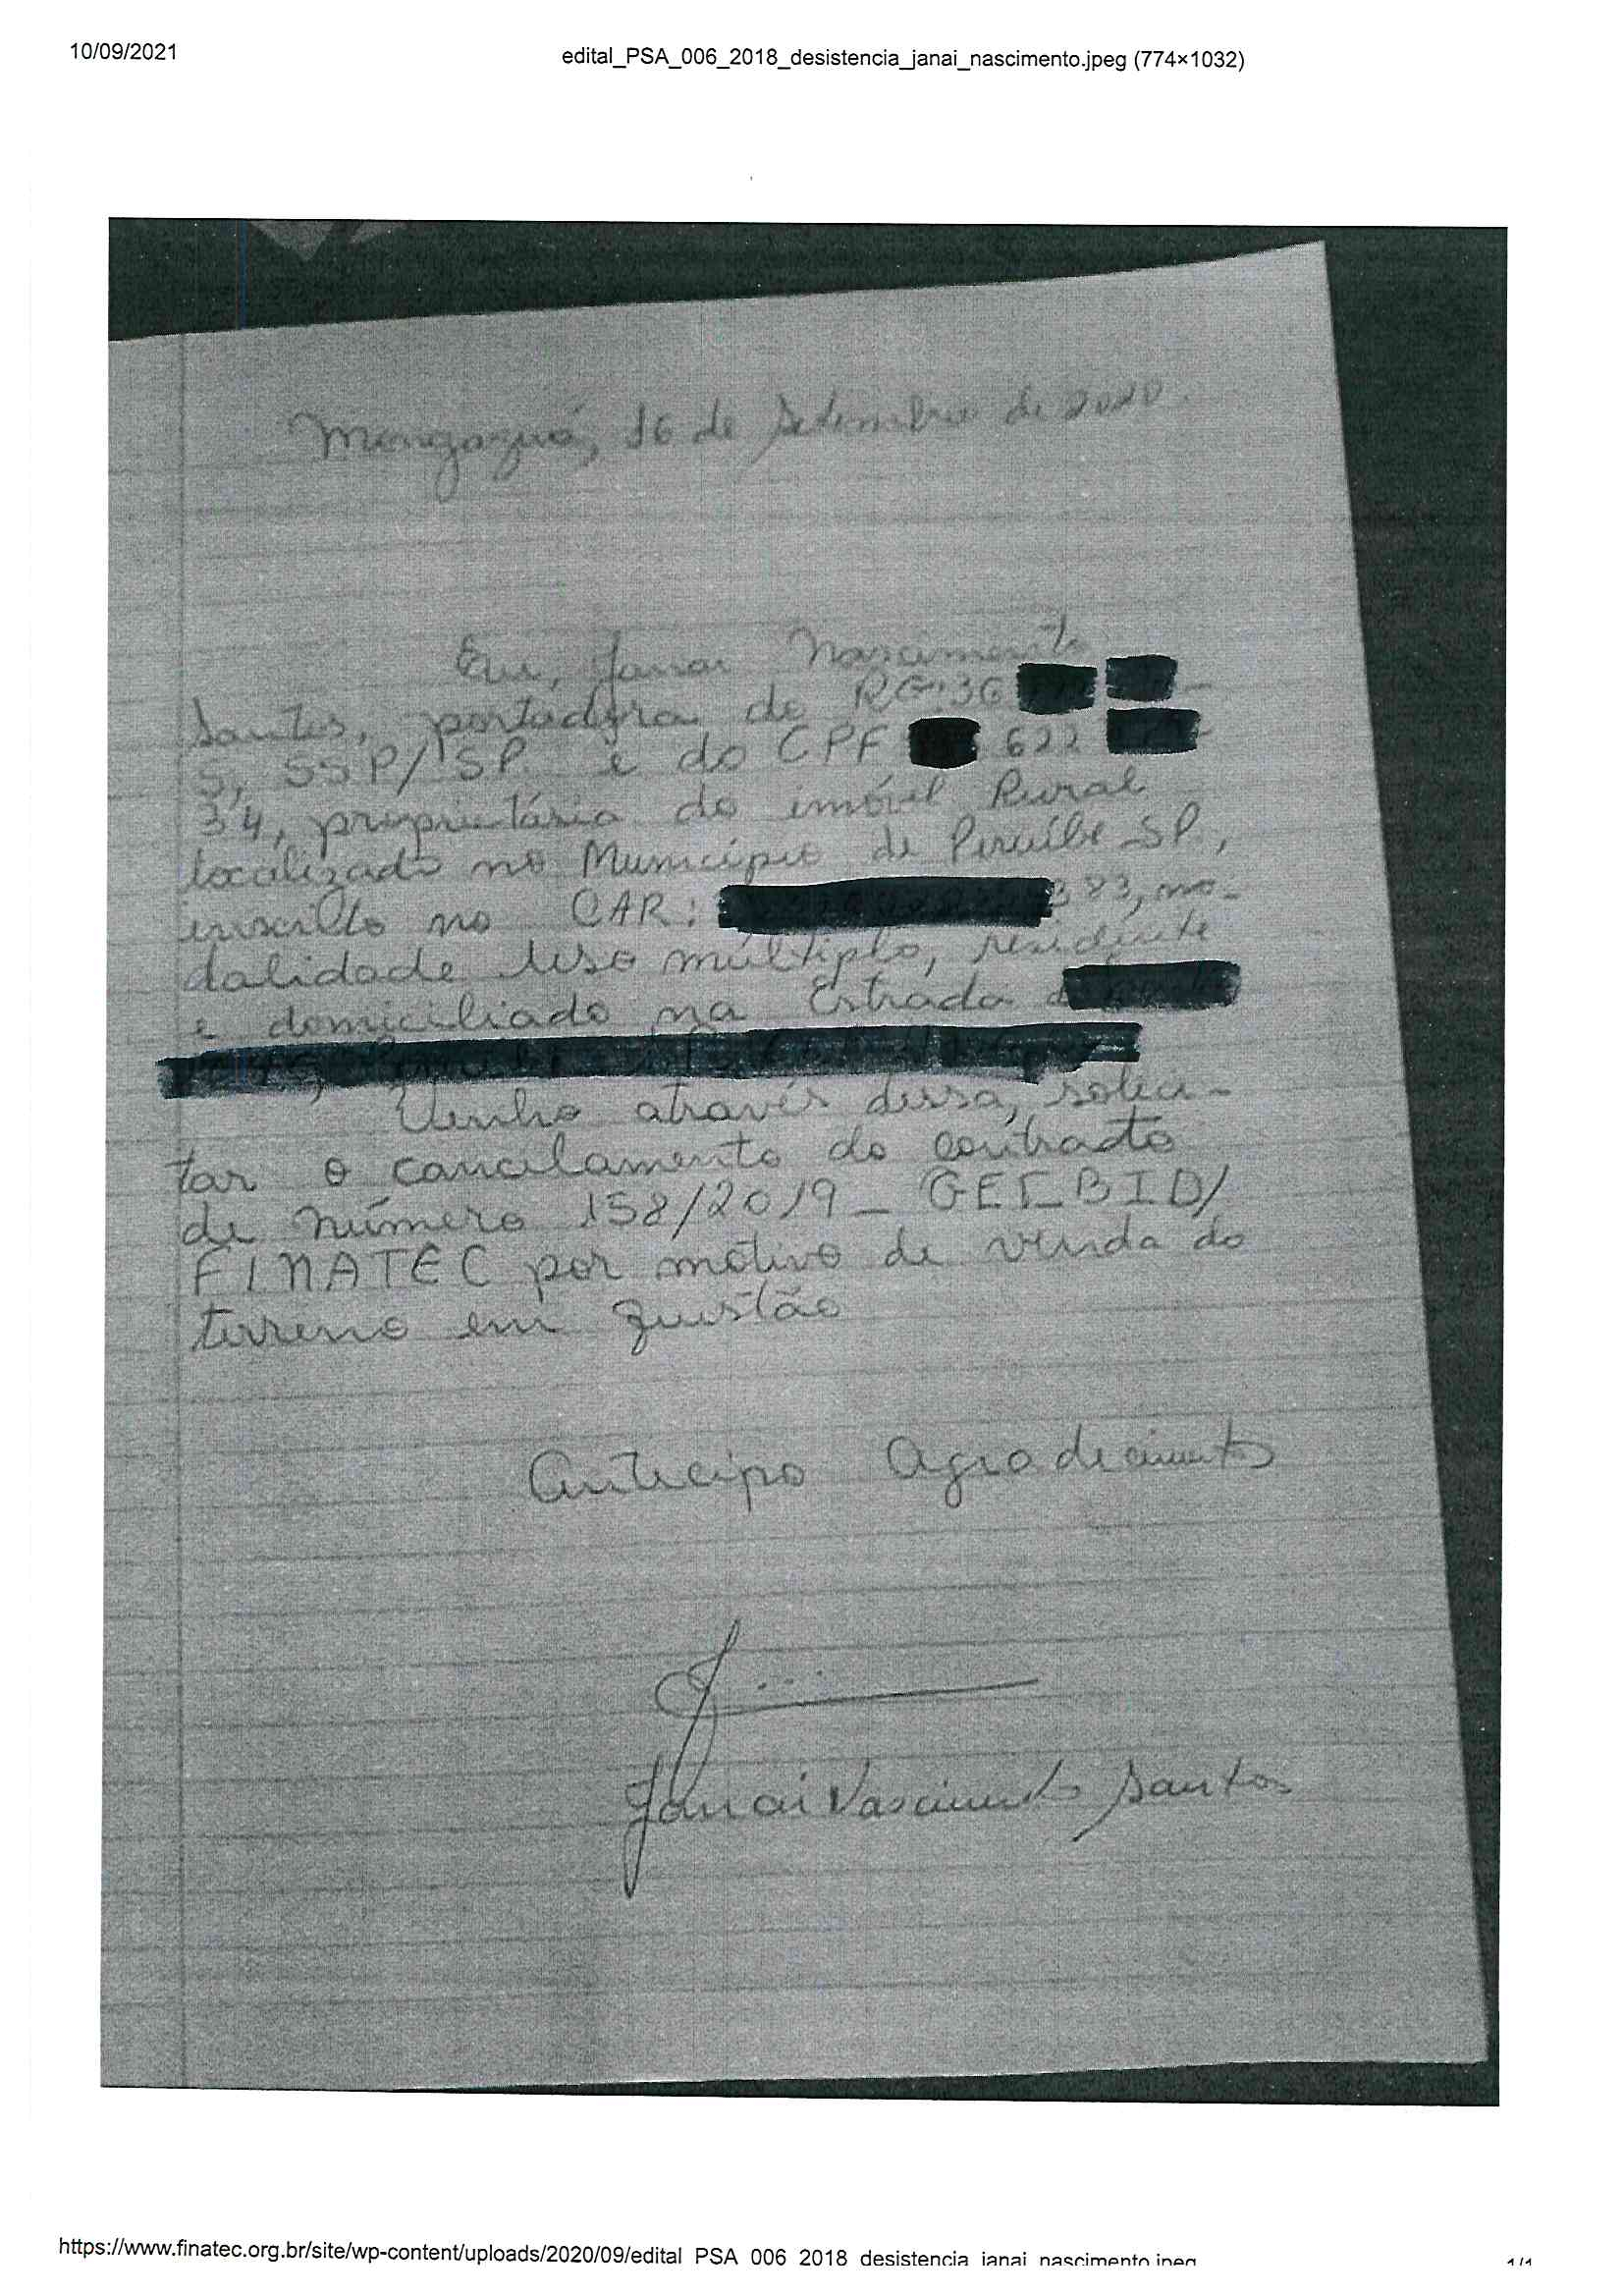 10/09/2021 edital_PSA_006_2018_desistencia_janai_nascimento.jpeg (774×1032)
Mongaguá, 16 de Setembro de 2020.
Eu, Janai Nascimento
Santos, portadora do RG:36
5, SSP/SP. e do CPF 622 -
34, proprietária do imóvel Rural
localizado no Município de Peruíbe-SP,
inscrito no CAR: 383, mo-
dalidade Uso múltiplo, residente
e domiciliado na Estrada
Venho através dessa, solici-
tar o cancelamento do contrato
de número 158/2019 - GEF_BID/
FINATEC por motivo de venda do
terreno em questão
Antecipo Agradecimento
Janai Nascimento Santos
https://www.finatec.org.br/site/wp-content/uploads/2020/09/edital_PSA_006_2018_desistencia_janai_nascimento.jpeg 1/1